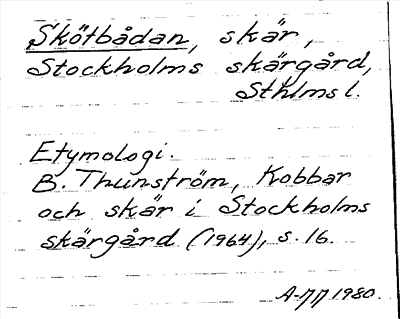 Skötbådan, skär,
Stockholms skärgård,
Sthlms l.
Etymologi.
B. Thunström, Kobbar
och skär i Stockholms
skärgård (1964), s. 16.
1980.